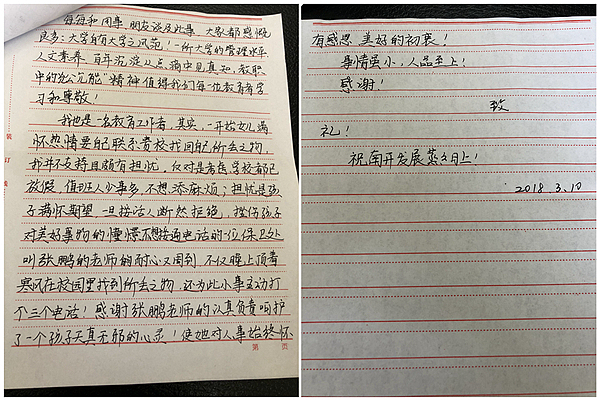 每每和同事、朋友谈及此事,大家都感慨
良多:大学自有大学之风范!一所大学的管理水平
人文素养、百年沉淀从点滴中见真知,教职
中的"允公允能"精神值得我们每一位教育者学
习和尊敬!
我也是一名教育工作者,其实,一开始女儿满
怀热情要自己联系贵校找回自己所丢之物,
我并不支持且颇有担忧,反对是考虑学校都已
放假,值班人少事多,不想添麻烦;担忧是孩
子满怀期望一旦接话人断然拒绝,挫伤孩子
对美好事物的憧憬,不想接通电话的一位保卫处
叫张鹏的老师的耐心又周到,不仅晚上顶着
寒风在校园里找到所丢之物,还为此小事主动打
了三个电话!感谢张鹏老师的认真负责呵护
了一个孩子天真无邪的心灵!使她对人事始终怀
第 页
装
订
线
有感恩、美好的初衷!
事情虽小,人品至上!
感谢!
致
礼!
祝南开发展蒸蒸日上!
2018.3.10